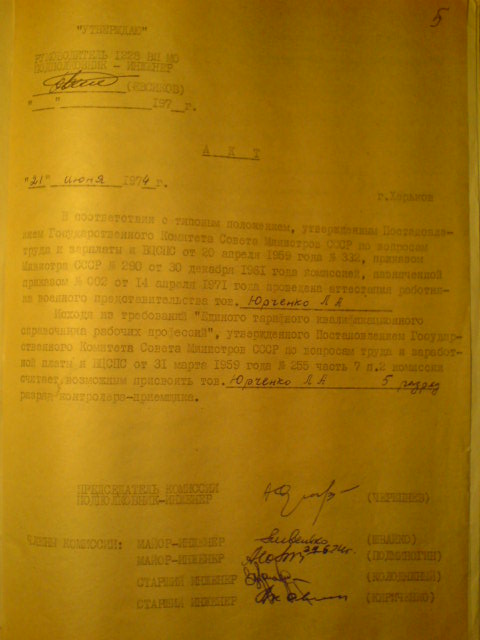 5
"УТВЕРЖДАЮ"
РУКОВОДИТЕЛЬ 1223 ВП МО
ПОДПОЛКОВНИК - ИНЖЕНЕР
(ЕВСИКОВ)
" " 197 г.
А К Т
"21" июня 1974 г.
г.Харьков
В соответствии с типовым положением, утвержденным Постановле-
нием Государственного Комитета Совета Министров СССР по вопросам
труда и зарплаты и ВЦСПС от 20 апреля 1959 года № 332, приказом
Министра СССР № 290 от 30 декабря 1961 года комиссией, назначенной
приказом № 002 от 14 апреля 1971 года проведена аттестация работни-
ка военного представительства тов. Юрченко Л А
Исходя из требований "Единого тарифного квалификационного
справочника рабочих профессий", утвержденного Постановлением Государ-
ственного Комитета Совета Министров СССР по вопросам труда и заработ-
ной платы и ВЦСПС от 31 марта 1959 года № 255 часть 7 п.2 комиссия
считает возможным присвоить тов. Юрченко Л А 5 разряд
разряд контролера-приемщика.
ПРЕДСЕДАТЕЛЬ КОМИССИИ
ПОДПОЛКОВНИК-ИНЖЕНЕР
ЧЛЕНЫ КОМИССИИ: МАЙОР-ИНЖЕНЕР (ИВАНКО)
МАЙОР-ИНЖЕНЕР
СТАРШИЙ ИНЖЕНЕР
СТАРШИЙ ИНЖЕНЕР (КИРИЧЕНКО)